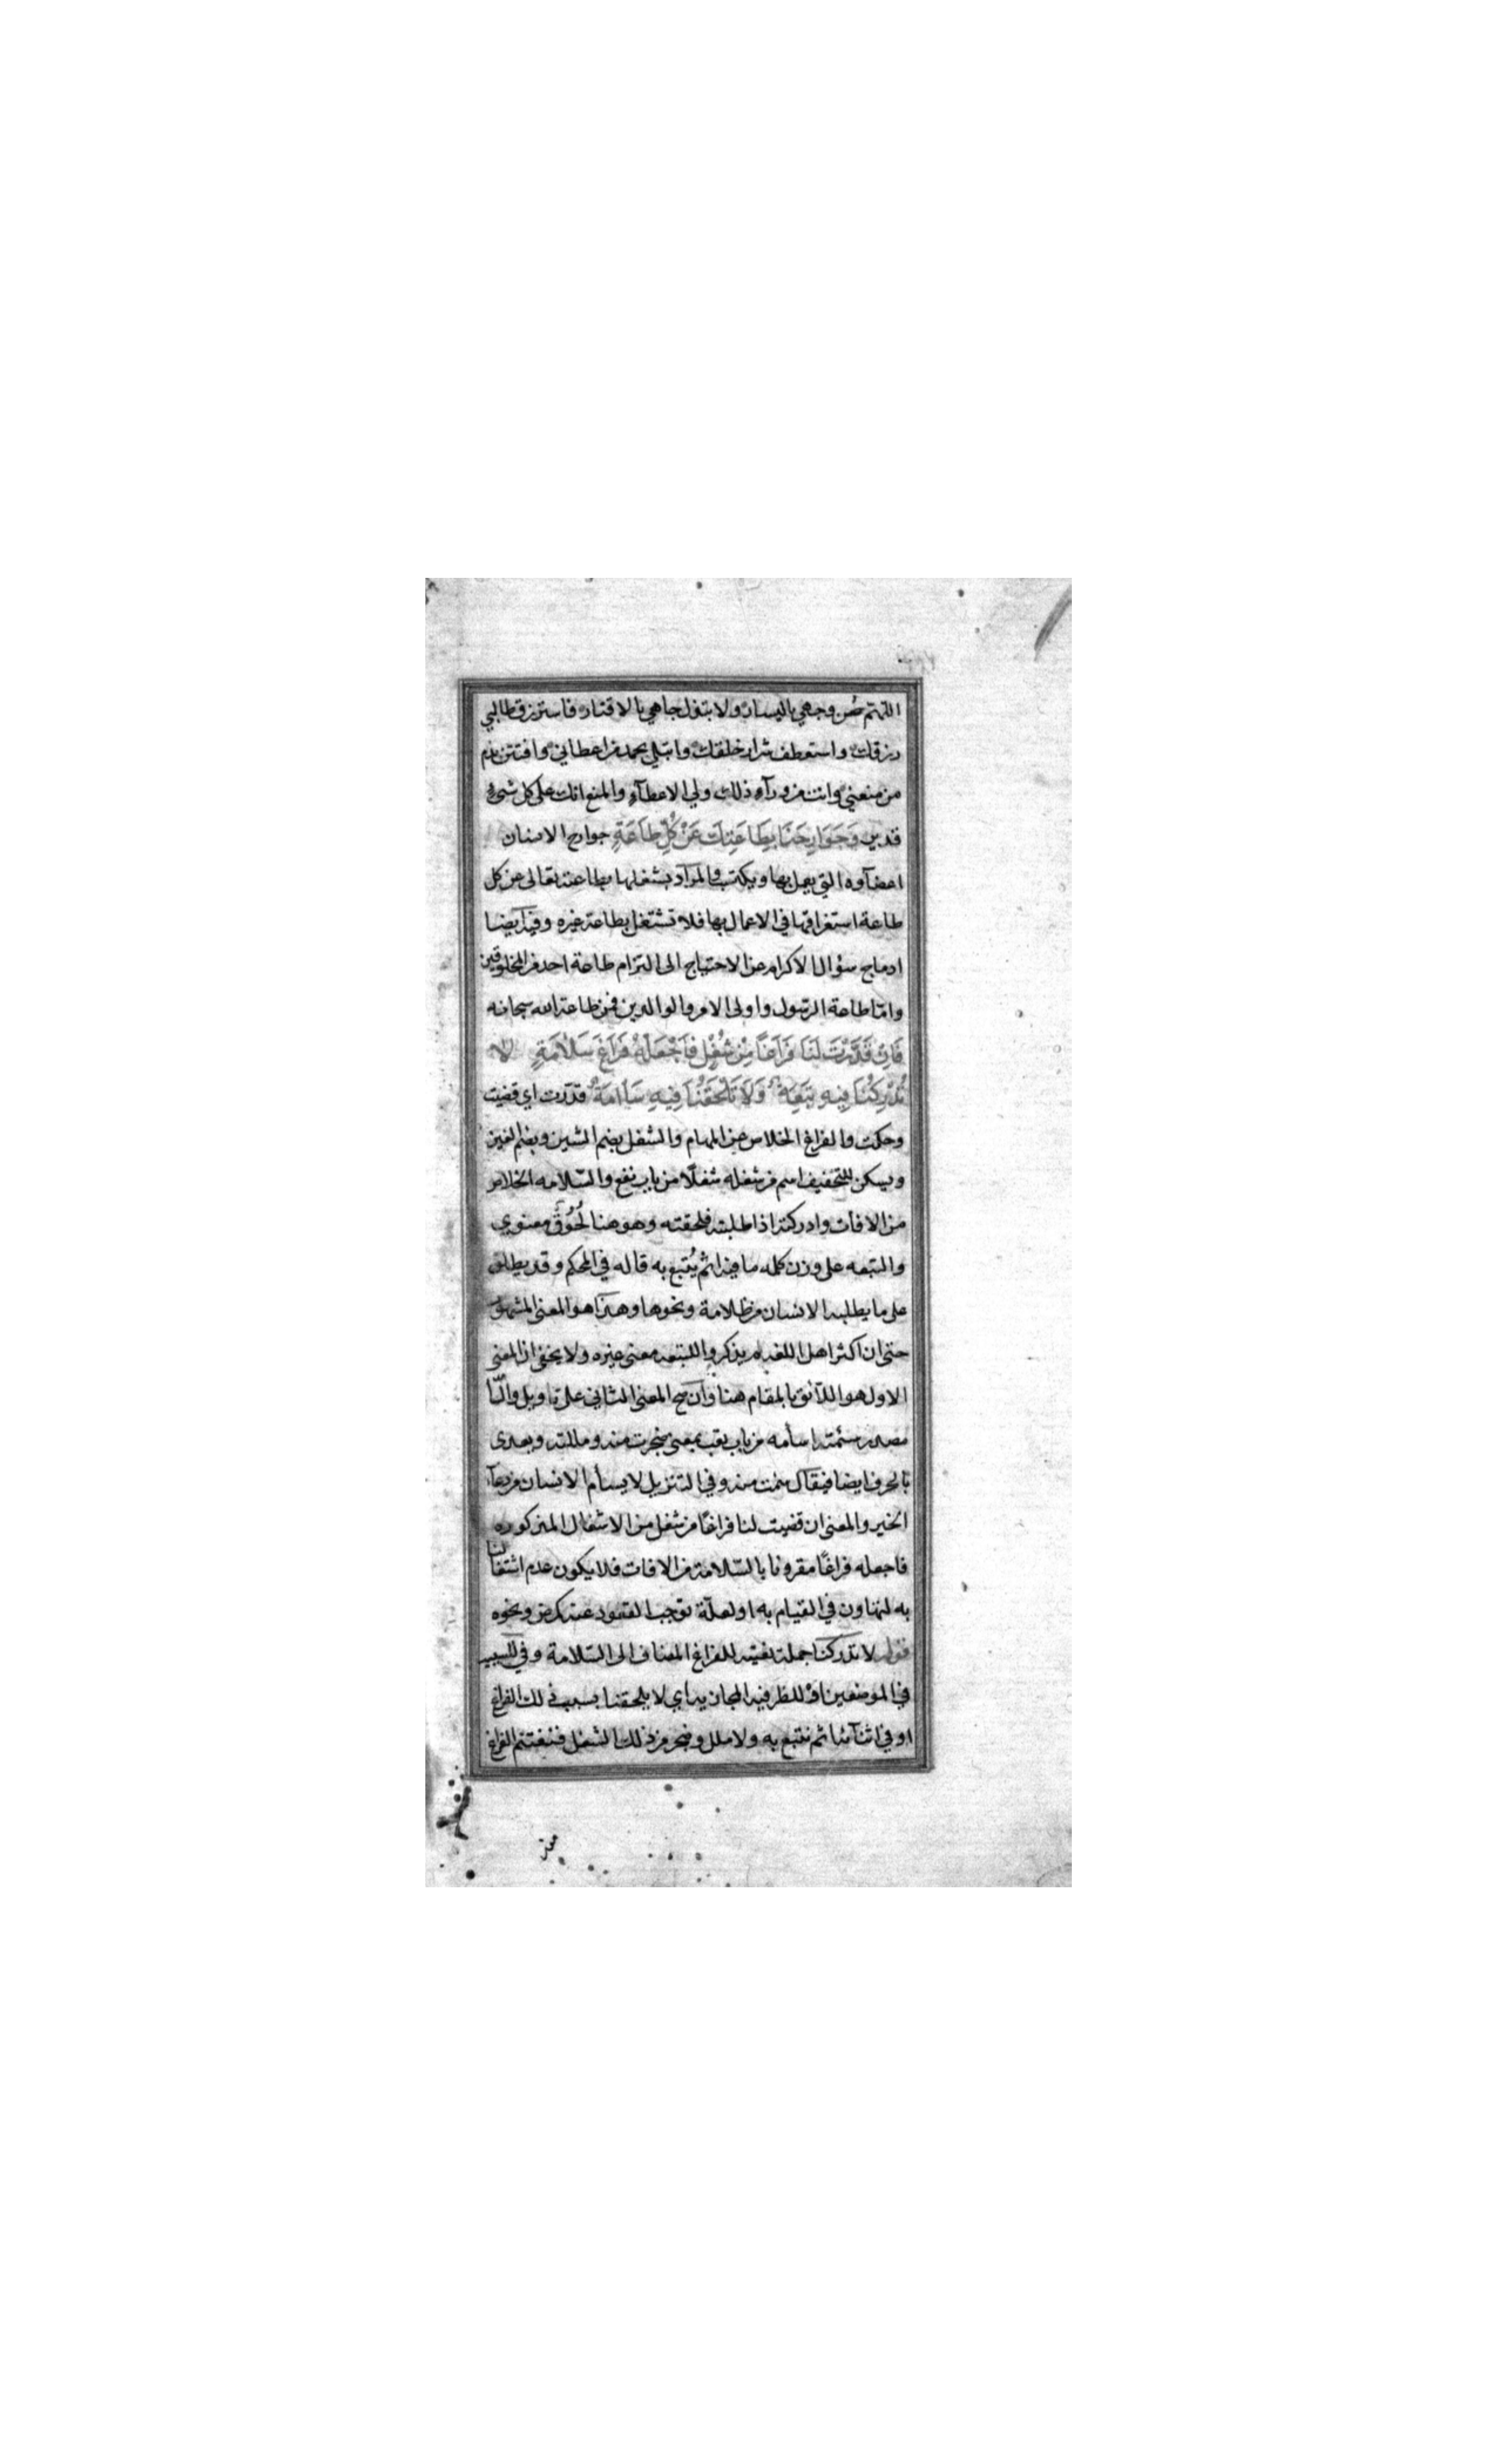 اللهم صُن وجهي باليسار ولا تبذل جاهي بالاقتار فاسترزق طالبي
رزقك واستعطف شرار خلقك وابتلي بحمد من اعطاني وافتتن بذم
من منعني وانت من ورآء ذلك ولي الاعطآء والمنع انك على كل شيء
قدير وَجَوَارِحَنَا بِطَاعَتِكَ عَنْ كُلِّ طَاعَةٍ جوارح الانسان
اعضآوه التي يعمل بها ويكتسب والمراد بشغلها بطاعته تعالى عن كل
طاعة استغراقها في الاعمال بها فلا تشتغل بطاعة غيره وفيه ايضا
ادماج سؤال الاكرام عن الاحتياج الى التزام طاعة احد من المخلوقين
وامّا طاعة الرسول واولى الامر والوالدين فمن طاعة الله سبحانه
فَاِنْ قَدَّرْتَ لَنَا فَرَاغًا مِنْ شُغْلٍ فَاجْعَلْهُ فَرَاغَ سَلَامَةٍ لا
تُدْرِكُنَا فِيهِ تَبِعَةٌ وَلَا تَلْحَقُنَا فِيهِ سَأمَةٌ قدّرت اي قضيت
وحكمت والفراغ الخلاص من المهام والشغل بضم الشين وبضم الغين
ويسكن للتخفيف اسم من شغله شغلًا من باب نفع والسّلامه الخلاص
من الافات وادركته اذا طلبته فلحقته وهو هنا لُحُوقٌ معنوي
والتبعه على وزن كلمه ما فيه اثم يُتبع به قاله في المحكم وقد يطلق
على ما يطلبه الانسان من ظلامة ونحوها وهذا هو المعنى المشهور
حتى ان اكثر اهل اللغه لم يذكروا للتبعه معنى غيره ولا يخفى ان المعنى
الاول هو اللآئق بالمقام هنا وان صح المعنى الثاني على تاويل والسّا
مصدر سئمته اسأمه من باب تعب بمعنى ضجرت منه ومللته ويعدى
بالحرف ايضا فيقال سئمت منه وفي التنزيل لا يسأم الانسان من دعآء
الخير والمعنى ان قضيت لنا فراغًا من شغل من الاشغال المذكوره
فاجعله فراغًا مقرونا بالسّلامة من الافات فلا يكون عدم اشتغالنا
به لتهاون في القيام به او لعلّة توجب القعود عنه كمرض ونحوه
فقوله لا تدركنا جملة نعتيه للفراغ المضاف الى السّلامة وفي للسببيه
في الموضعين او للظرفيه المجازيه اي لا يلحقنا بسبب ذلك الفراغ
او في اثنآئه اثم نتبع به ولا ملل وضجر من ذلك الشغل فنغتنم الفراغ